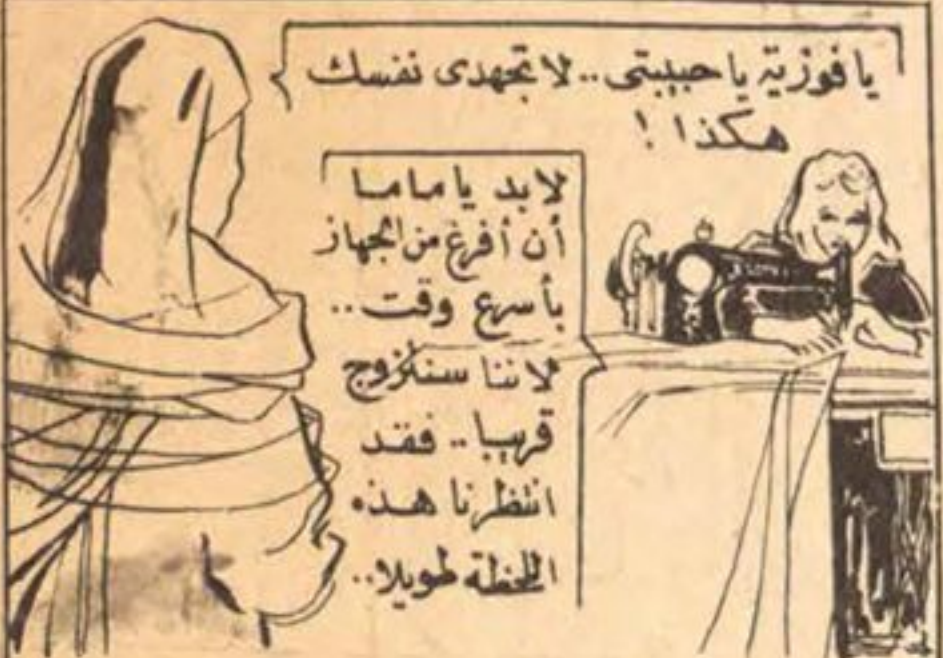 يا فوزية يا حبيبتى.. لا تجهدى نفسك
هكذا !
لابد يا ماما
أن أفرغ من الجهاز
بأسرع وقت..
لاننا سنتزوج
قريبا.. فقد
انتظرنا هذه
اللحظة طويلا..